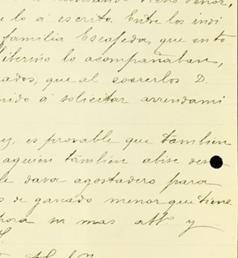 e lo á escrito. Entre los indi
familia Escajeda, que ento
lo acompañaban,
ados, que al D.
nido á solicitar arrendami
es, es provable que tambien
aquien tambien alise den
le dava agostadero para
s de ganado menor que tiene
hora su mas att° y